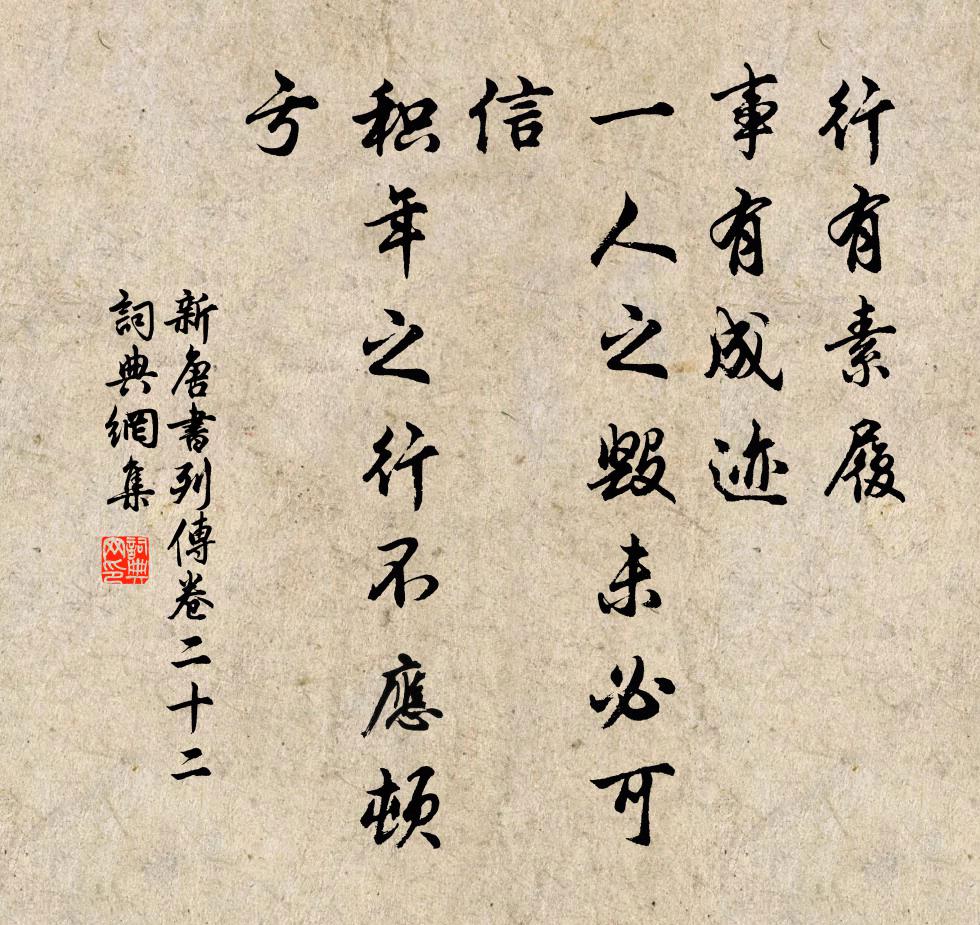 行有素履
事有成迹
一人之毀未必可
信
积年之行不應頓
亏
新唐書列傳卷二十二
詞典網集
詞典網印